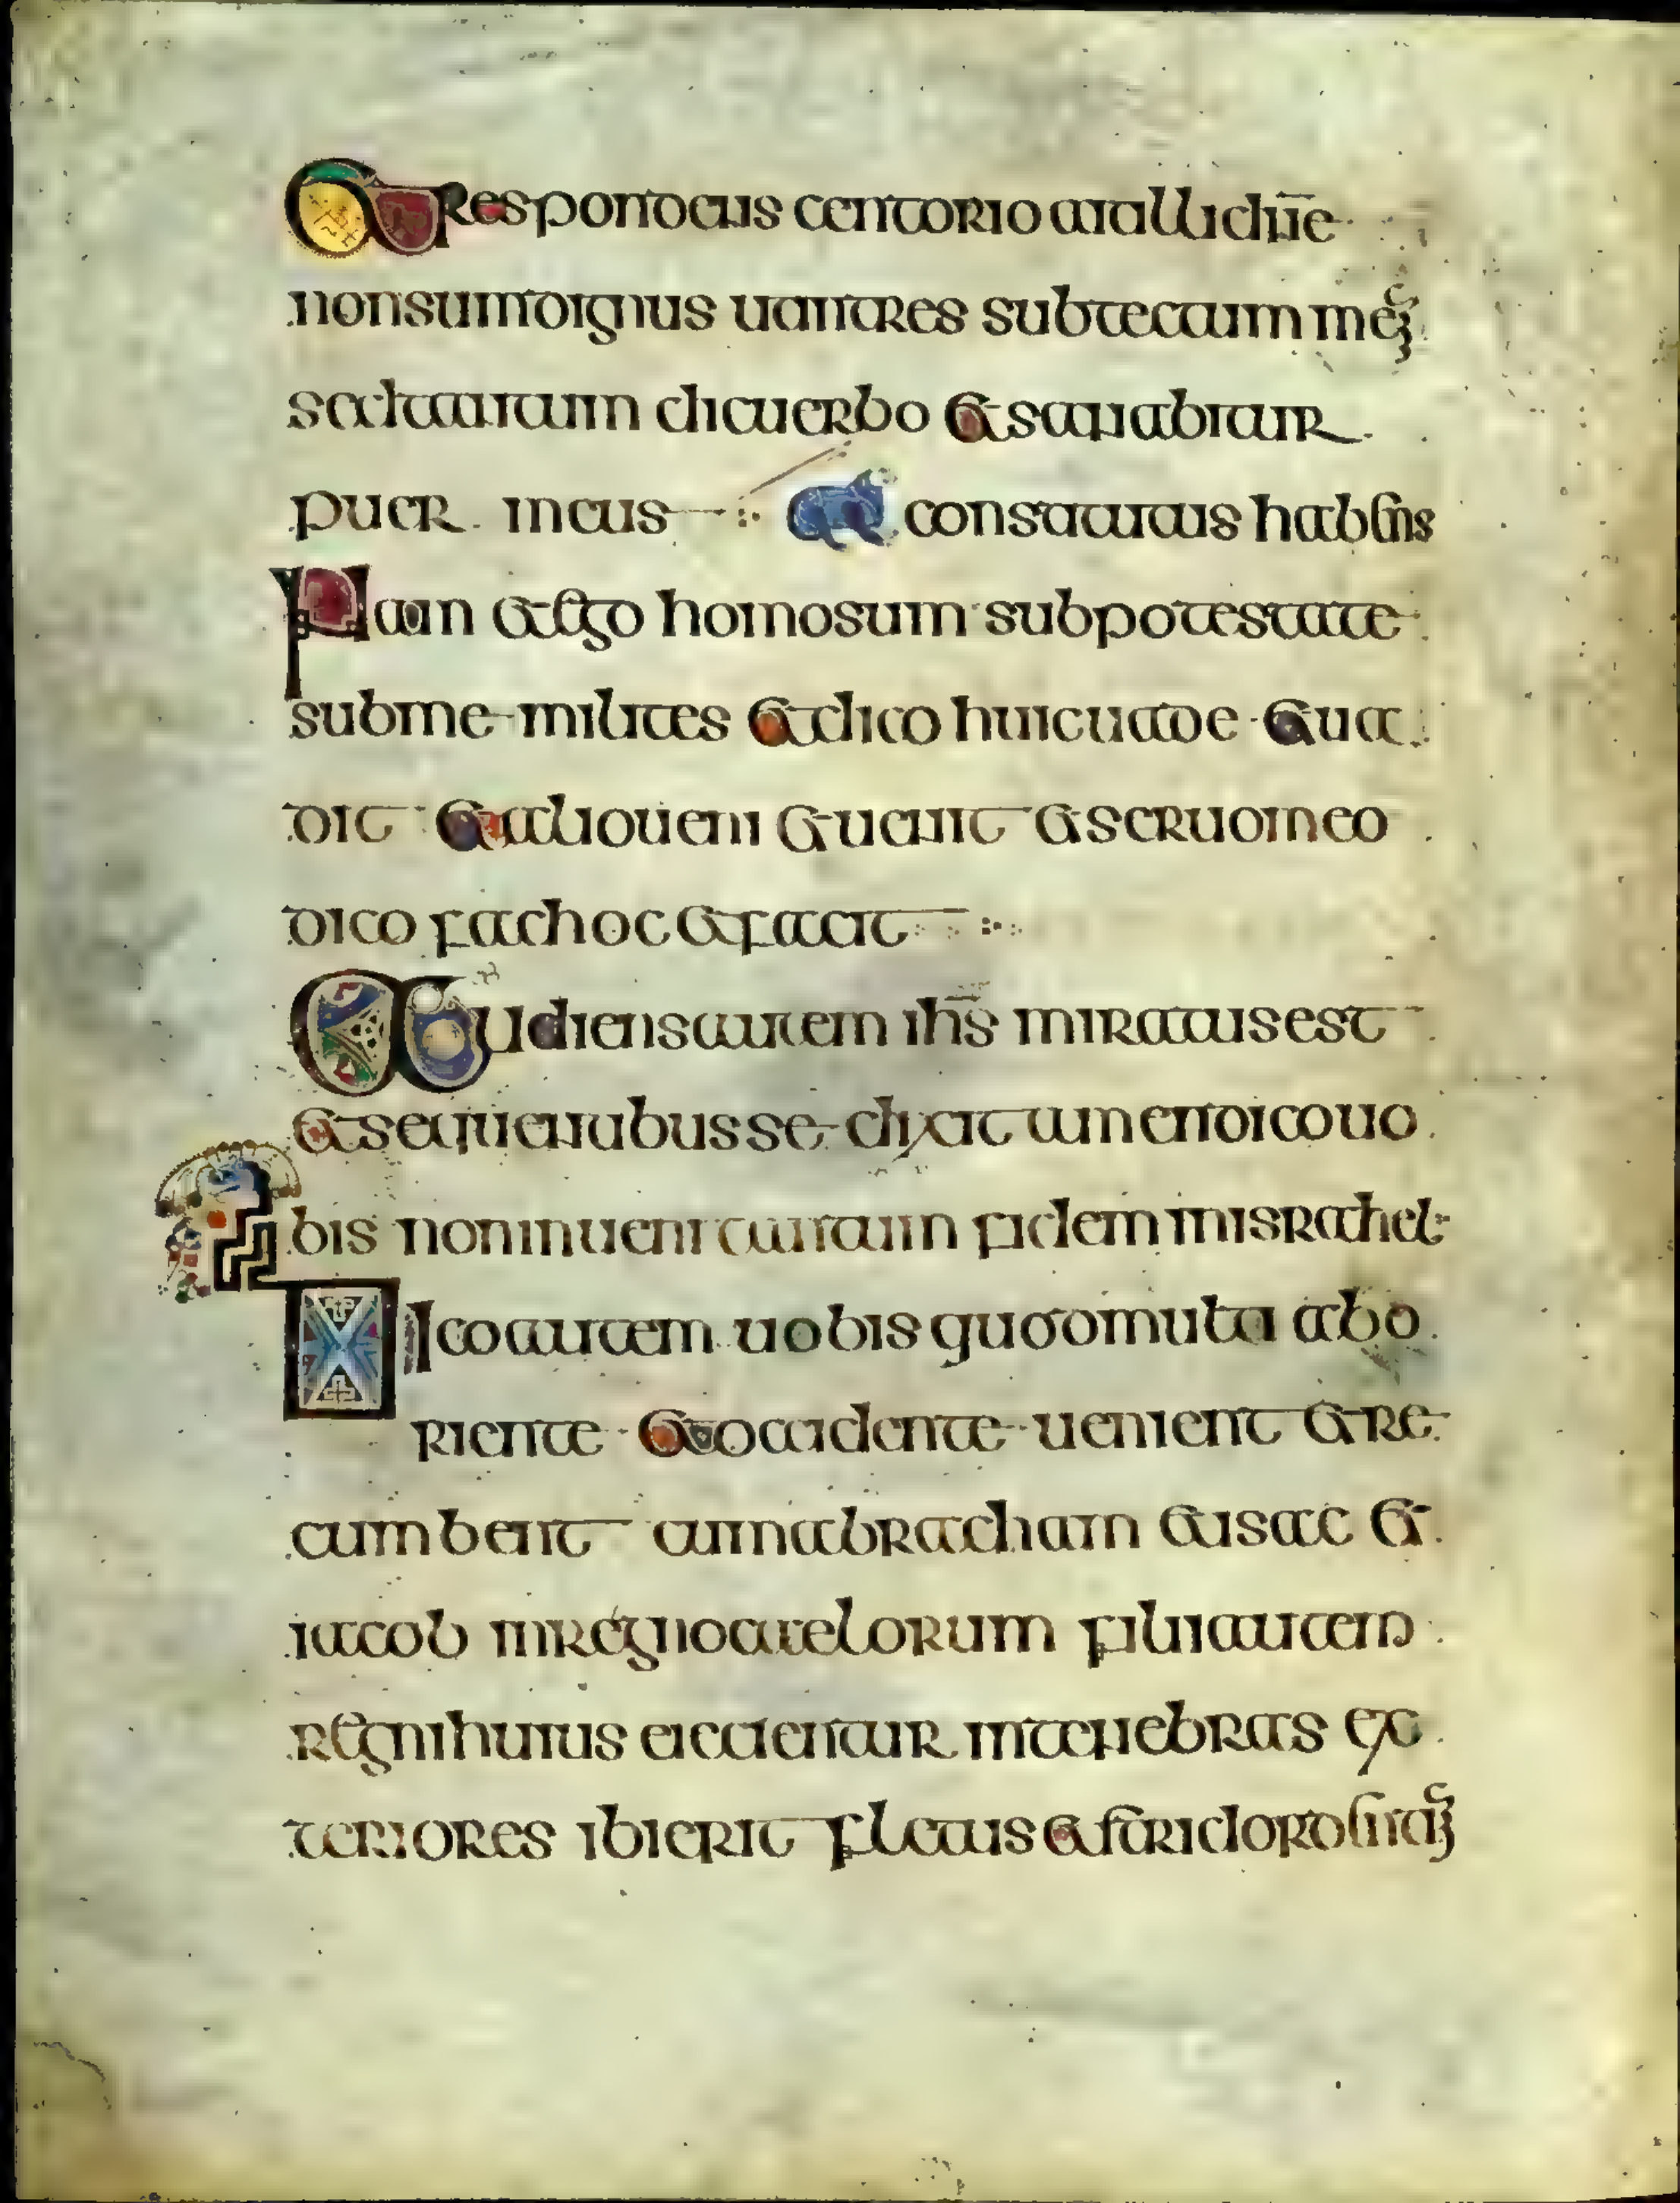 Et respondens centorio ait illi dn̄e
non sum dignus ut intres sub tectum meum
sed tantum dic uerbo et sanabitur
puer meus constitutus habens
Nam et ego homo sum sub potestate
sub me milites et dico huic uade et ua
dit et alio ueni et uenit et seruo meo
dico fac hoc et facit
Audiens autem ihs̄ miratus est
et sequentibus se dixit amen dico uo
bis non inueni tantam fidem in israhel
Dico autem uobis quod multi ab o
riente et occidente uenient et re
cumbent cum abracham et isac et
iacob in regno caelorum filii autem
regni huius eicientur in tenebras ex
teriores ibi erit fletus et stridor dentium